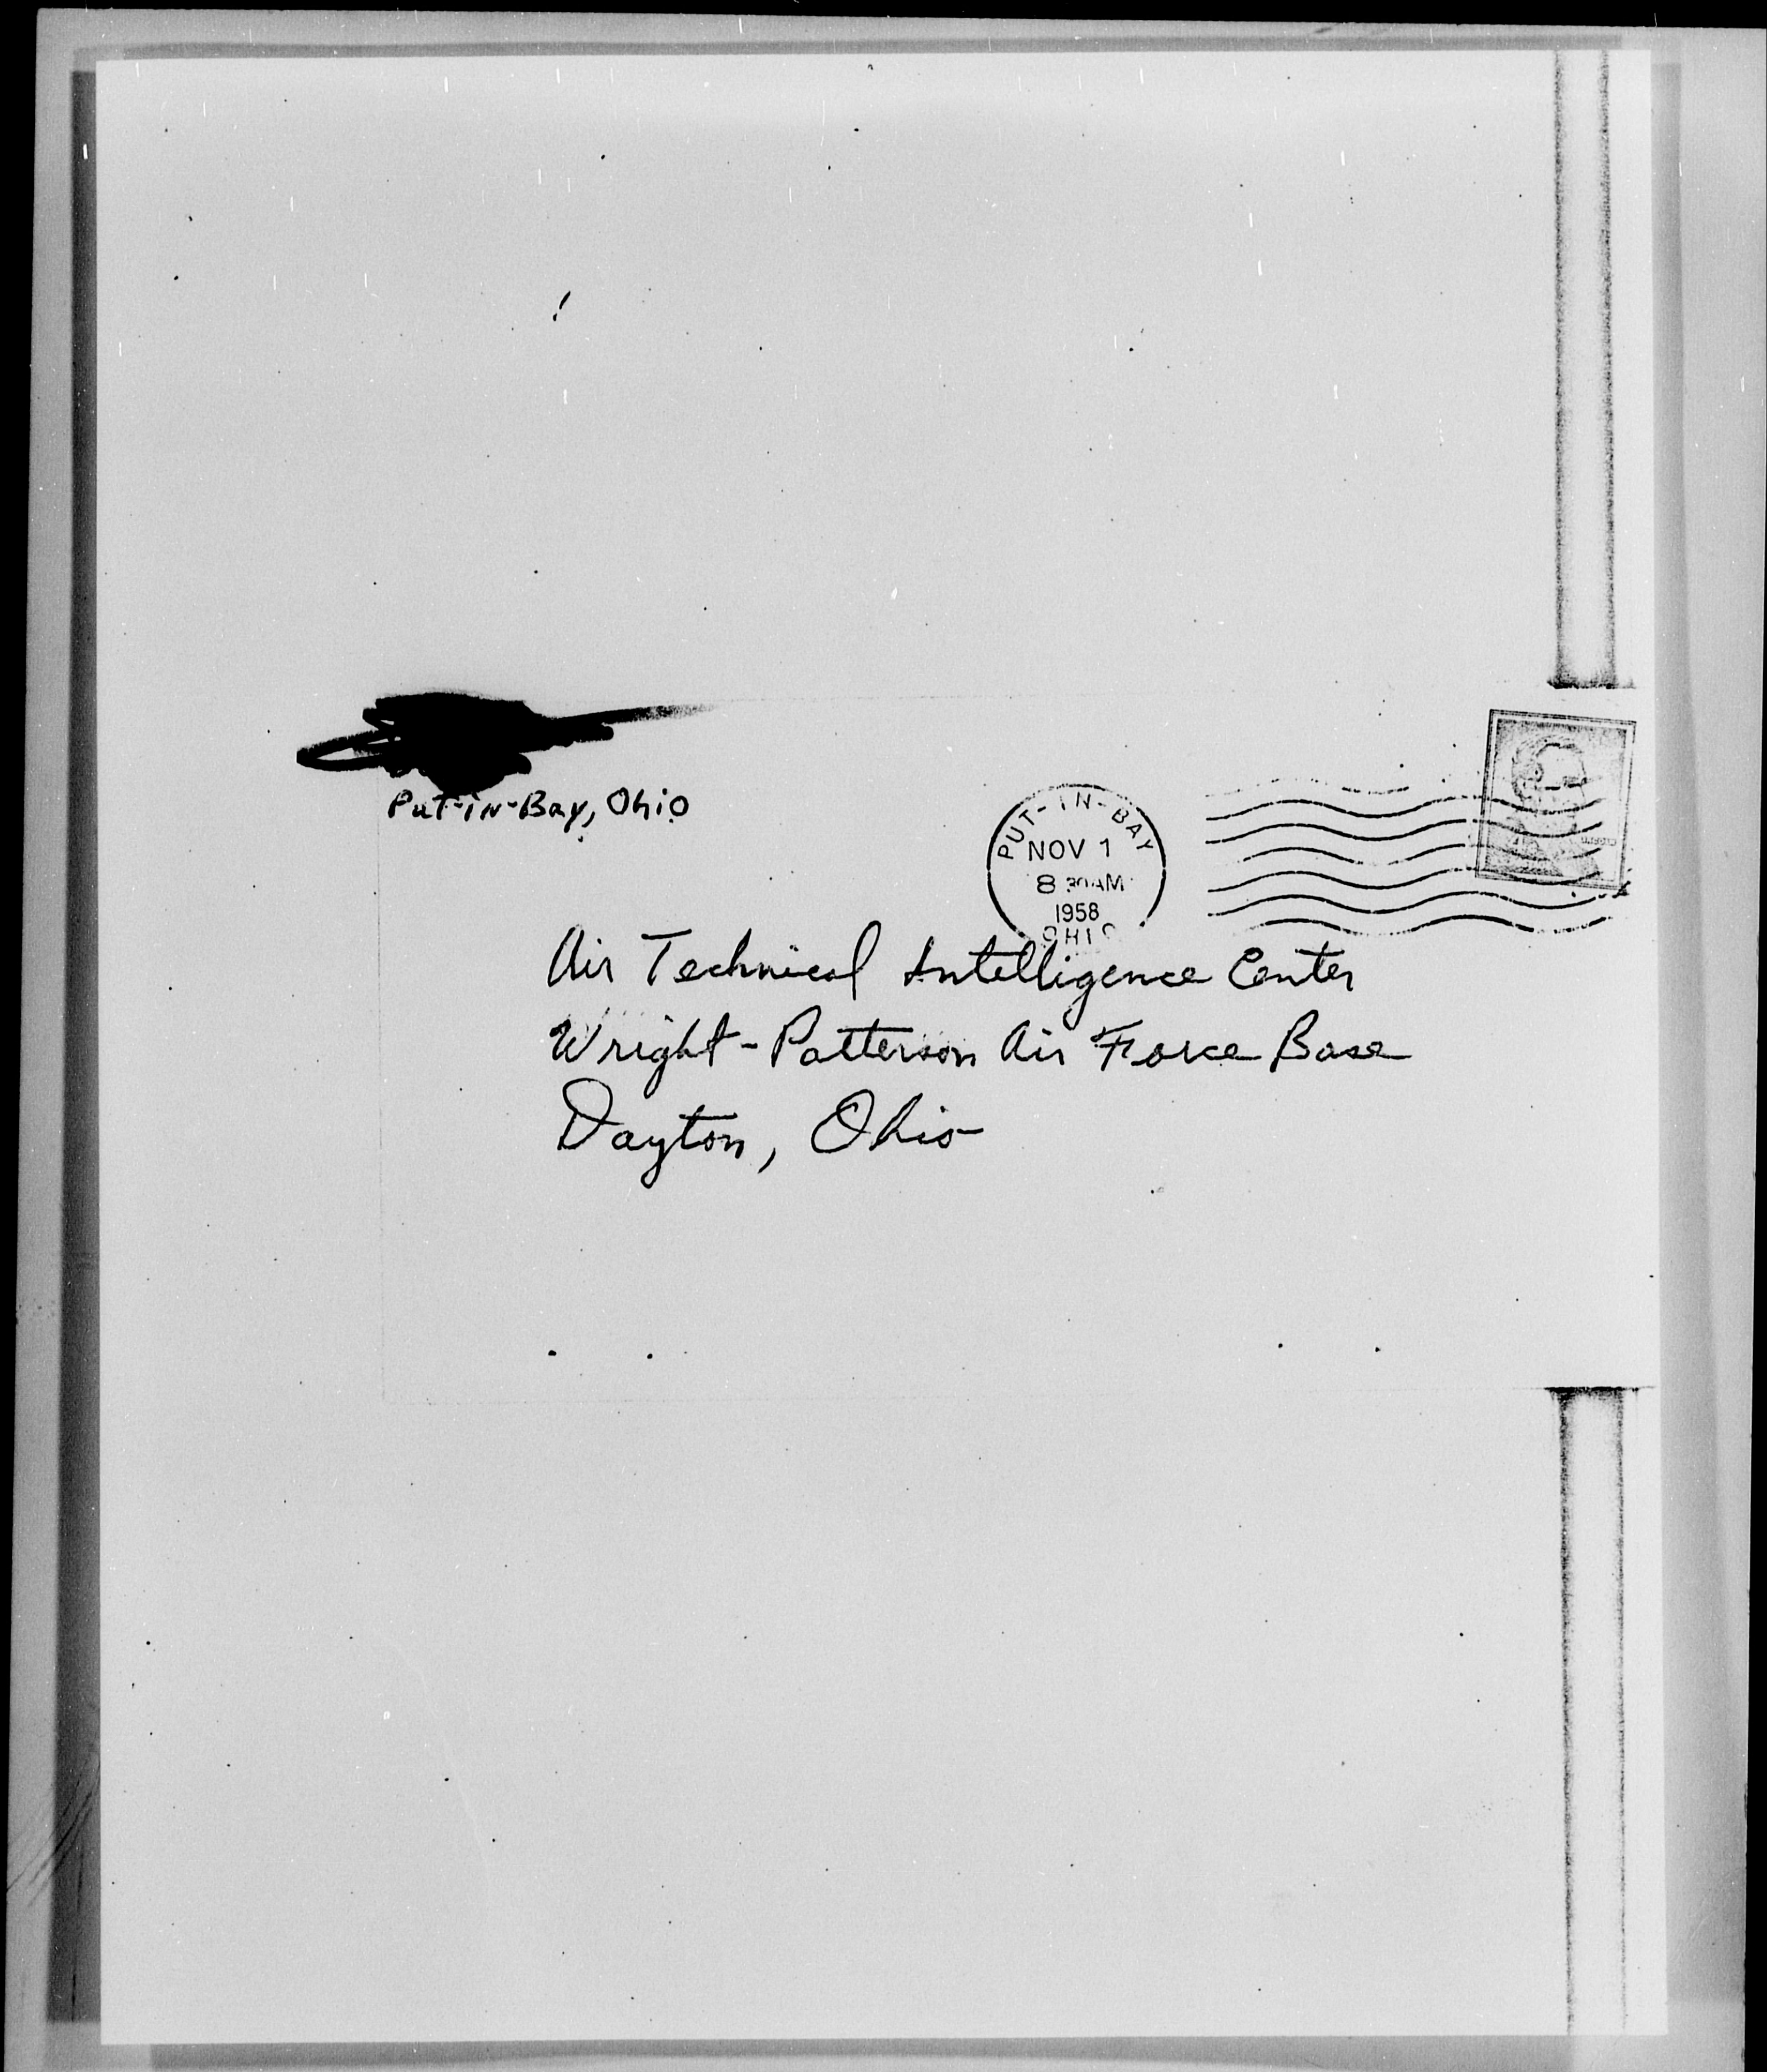 Put-in-Bay, Ohio
PUT-IN-BAY
NOV 1
8 30 AM
1958
OHIO
Air Technical Intelligence Center
Wright-Patterson Air Force Base
Dayton, Ohio